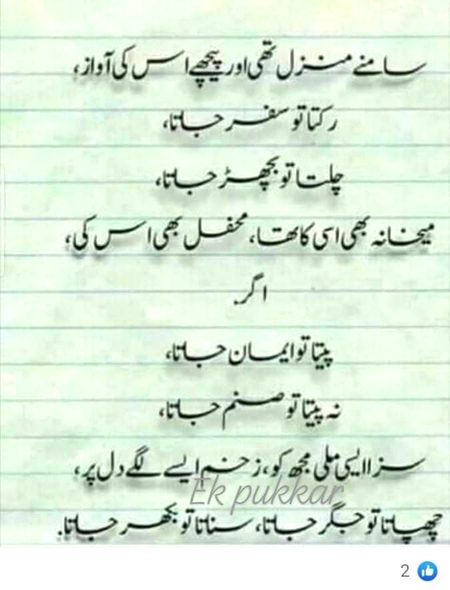 سامنے منزل تھی اور پیچھے اس کی آواز،
رکتا تو سفر جاتا،
چلتا تو بچھڑ جاتا،
میخانہ بھی اسی کا تھا، محفل بھی اس کی،
اگر
پیتا تو ایمان جاتا،
نہ پیتا تو صنم جاتا،
سزا ایسی ملی مجھ کو، زخم ایسے لگے دل پر،
Ek pukkar
چھپاتا تو جگر جاتا، سناتا تو بکھر جاتا.
2